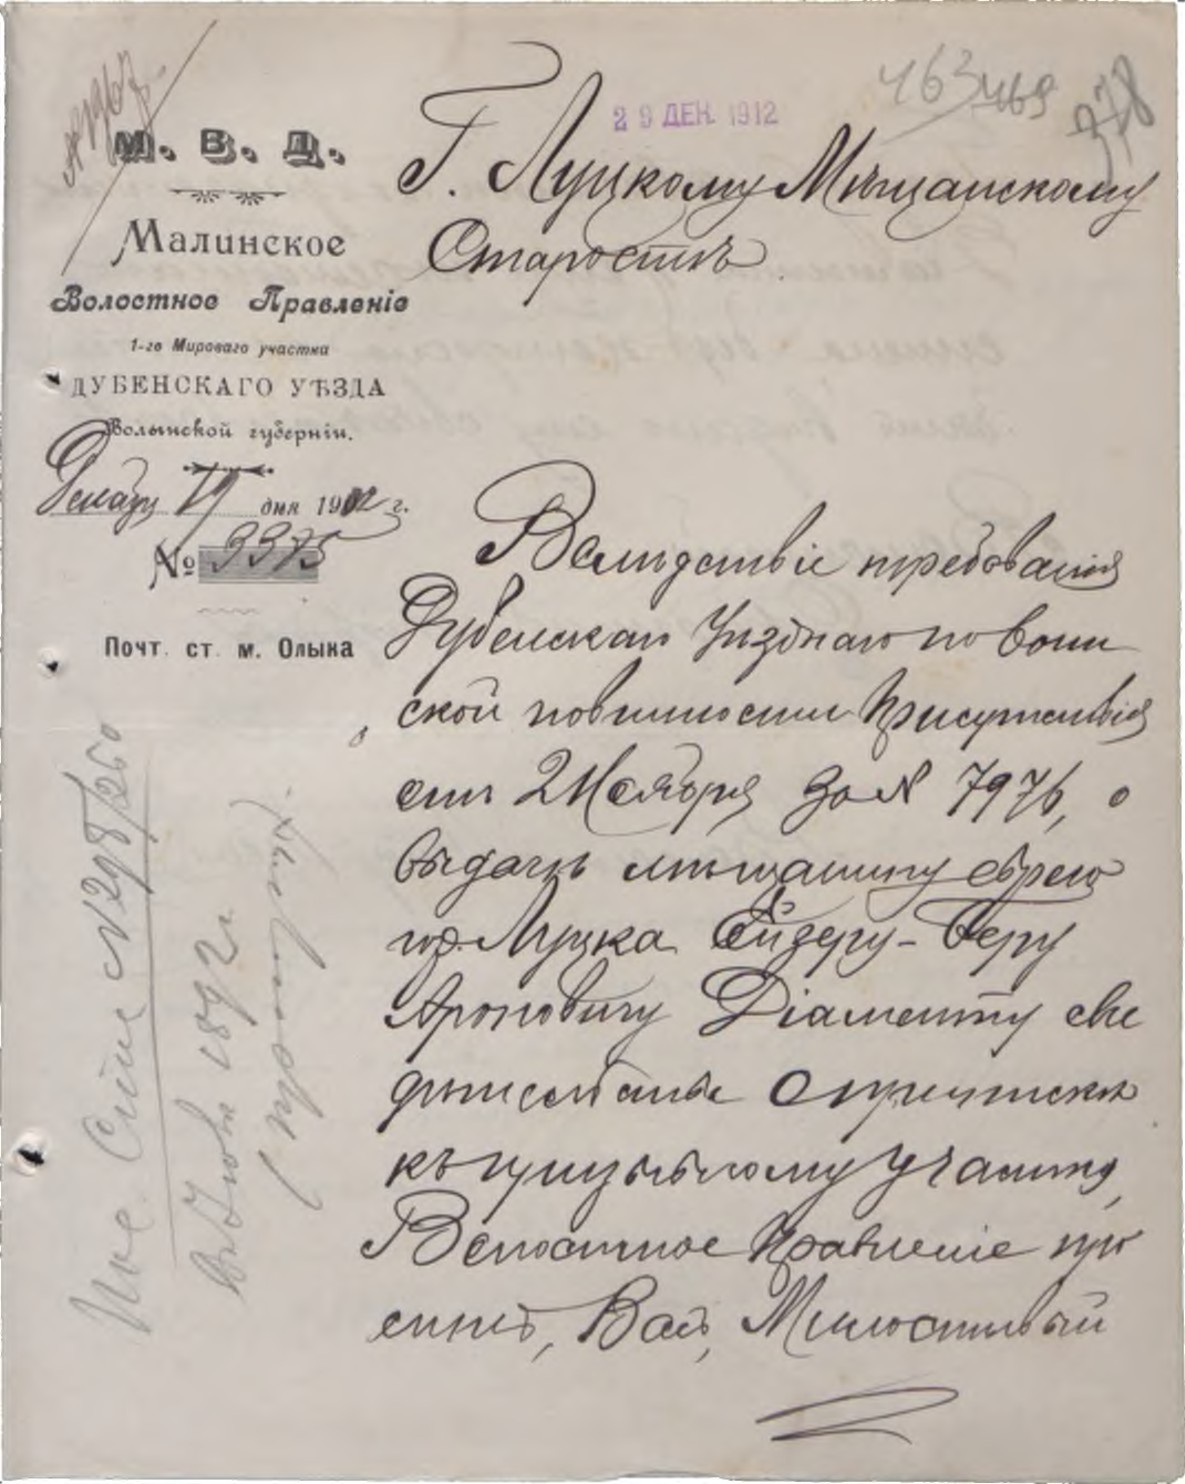 29 ДЕК. 1912
463
469
378
М. В. Д.
Малинское
Волостное Правленіе
1-го Мироваго участка
ДУБЕНСКАГО УѢЗДА
Волынской губерніи.
Декабря 19 дня 1912 г.
№ 3375
Почт. ст. м. Олыка
Г. Луцкому Мѣщанскому
Старостѣ.
Вслѣдствіе требованія
Дубенскаго Уѣзднаго по воин
ской повинности Присутствія
отъ 2 Ноября за № 7976, о
выдачѣ мѣщанину еврею
гор. Луцка Ейзеру-Беру
Ароновичу Діаменту сви
дѣтельства о припискѣ
къ призывному участку,
Волостное Правленіе про
ситъ, Васъ, Милостивый
Пос. Спис. № 298/260
1892 г.